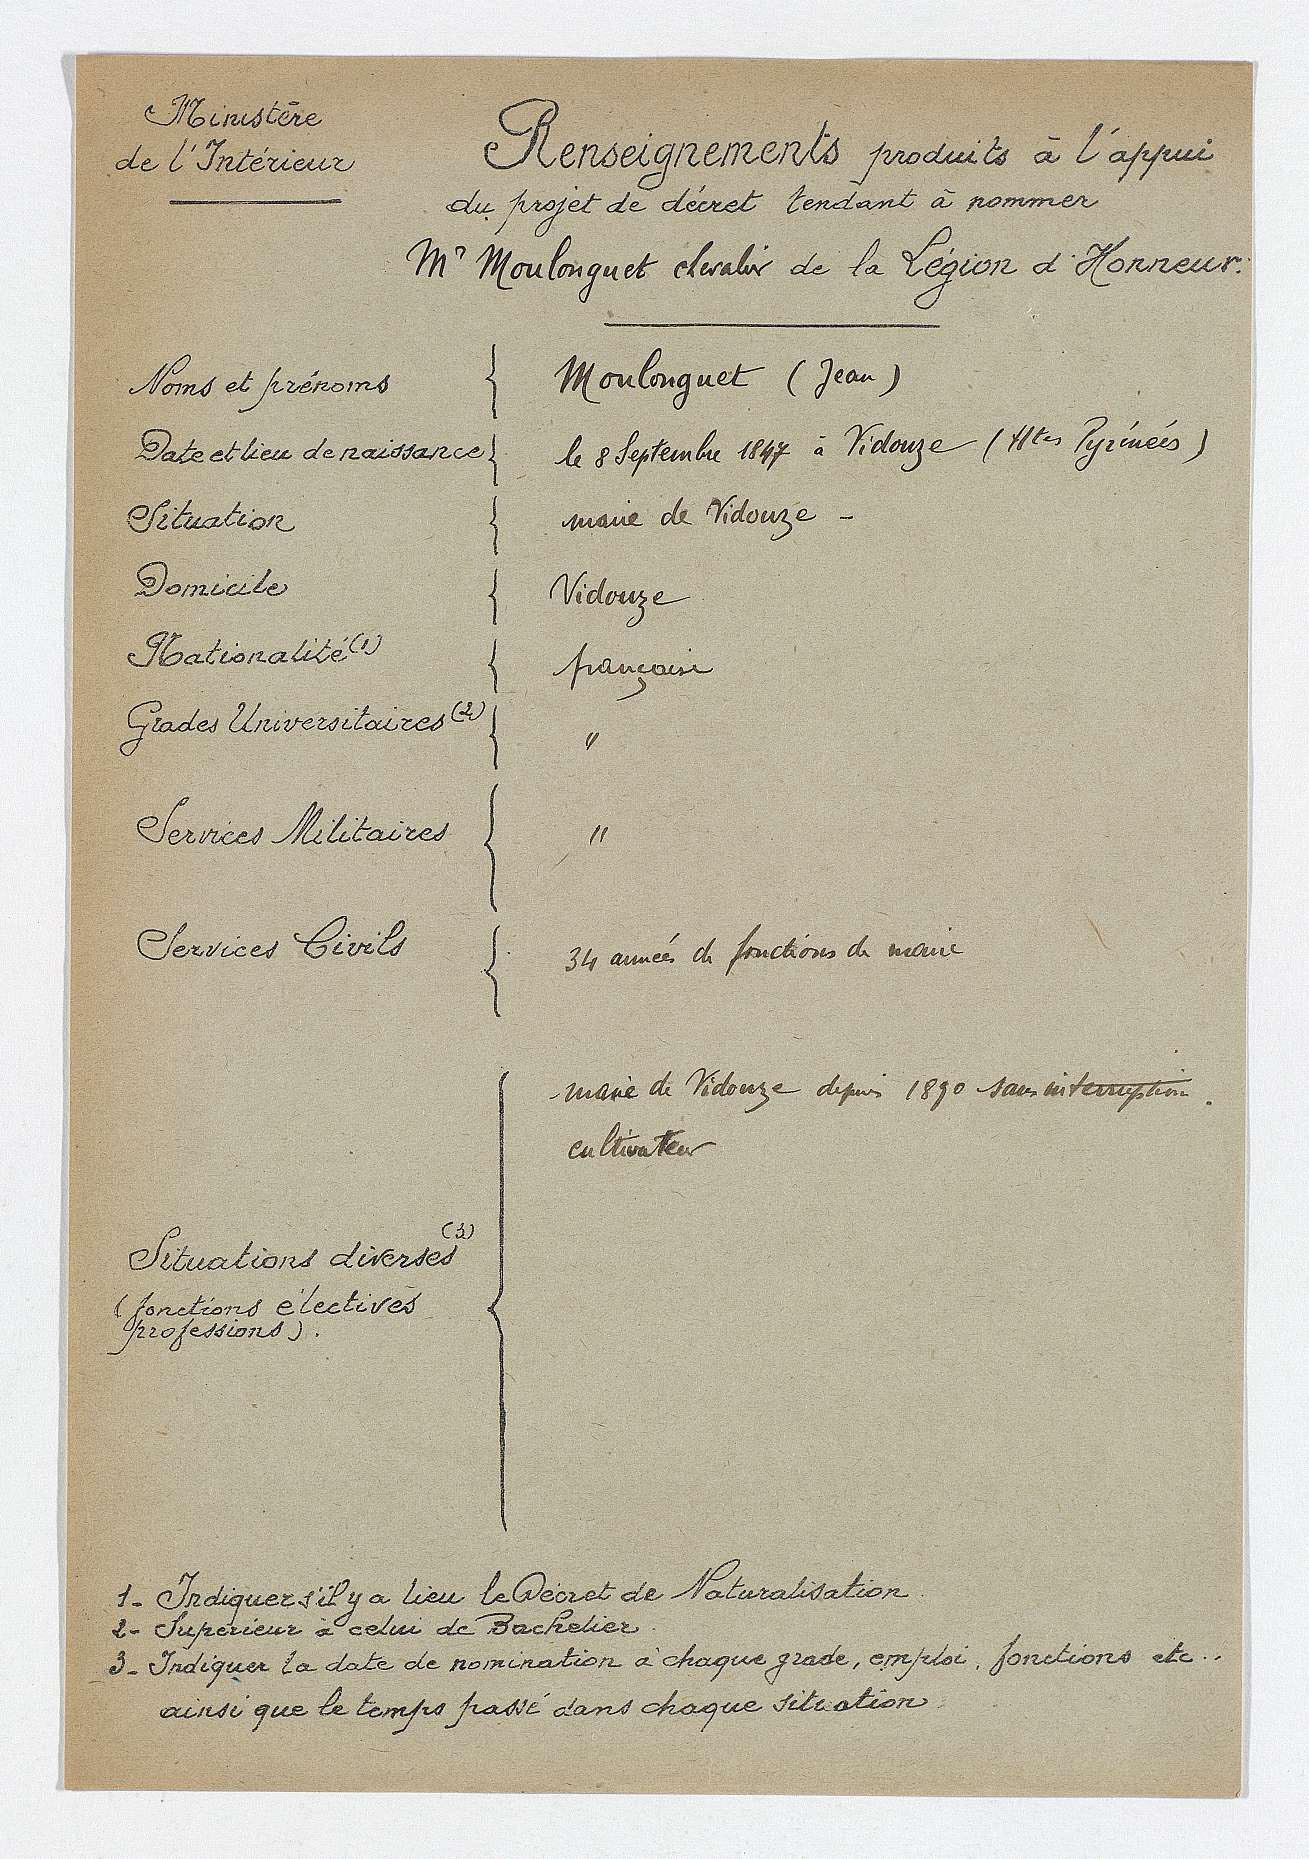 Ministère
de l'Intérieur
Renseignements produits à l'appui
du projet de décret tendant à nommer
Mr Moulonguet chevalier de la Légion d'Honneur.
Noms et prénoms { Moulonguet (Jean)
Date et lieu de naissance { le 8 Septembre 1847 à Vidouze (Htes Pyrénées)
Situation { maire de Vidouze -
Domicile { Vidouze
Nationalité (1) { française
Grades Universitaires (2) { "
Services Militaires { "
Services Civils { 34 années de fonctions de maire
maire de Vidouze depuis 1890 sans interruption.
cultivateur
Situations diverses (3) {
(fonctions électives
professions).
1- Indiquer s'il y a lieu le Décret de Naturalisation
2- Supérieur à celui de Bachelier.
3- Indiquer la date de nomination à chaque grade, emploi, fonctions etc..
ainsi que le temps passé dans chaque situation